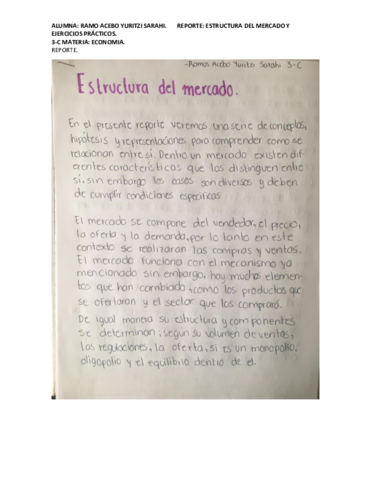 ALUMNA: RAMO ACEBO YURITZI SARAHI. REPORTE: ESTRUCTURA DEL MERCADO Y
EJERCICIOS PRÁCTICOS.
3-C MATERIA: ECONOMIA.
REPORTE.
-Ramos Acebo Yuritzi Sarahi 3-C
Estructura del mercado.
En el presente reporte veremos una serie de conceptos,
hipótesis y representaciones para comprender como se
relacionan entre sí. Dentro un mercado existen dif
erentes características que los distinguen entre
si, sin embargo los casos son diversos y deben
de cumplir condiciones especificas
El mercado se compone del vendedor, el precio,
la oferta y la demanda, por lo tanto en este
contexto se realizaran las compras y ventas.
El mercado funciona con el mecanismo ya
mencionado sin embargo, hay muchos elemen-
tos que han cambiado, como los productos que
se ofertaran y el sector que los comprará.
De igual manera su estructura y componentes
se determinan, según su volumen de ventas,
las regulaciones, la oferta, si es un monopolio,
oligopolio y el equilibrio dentro de el.